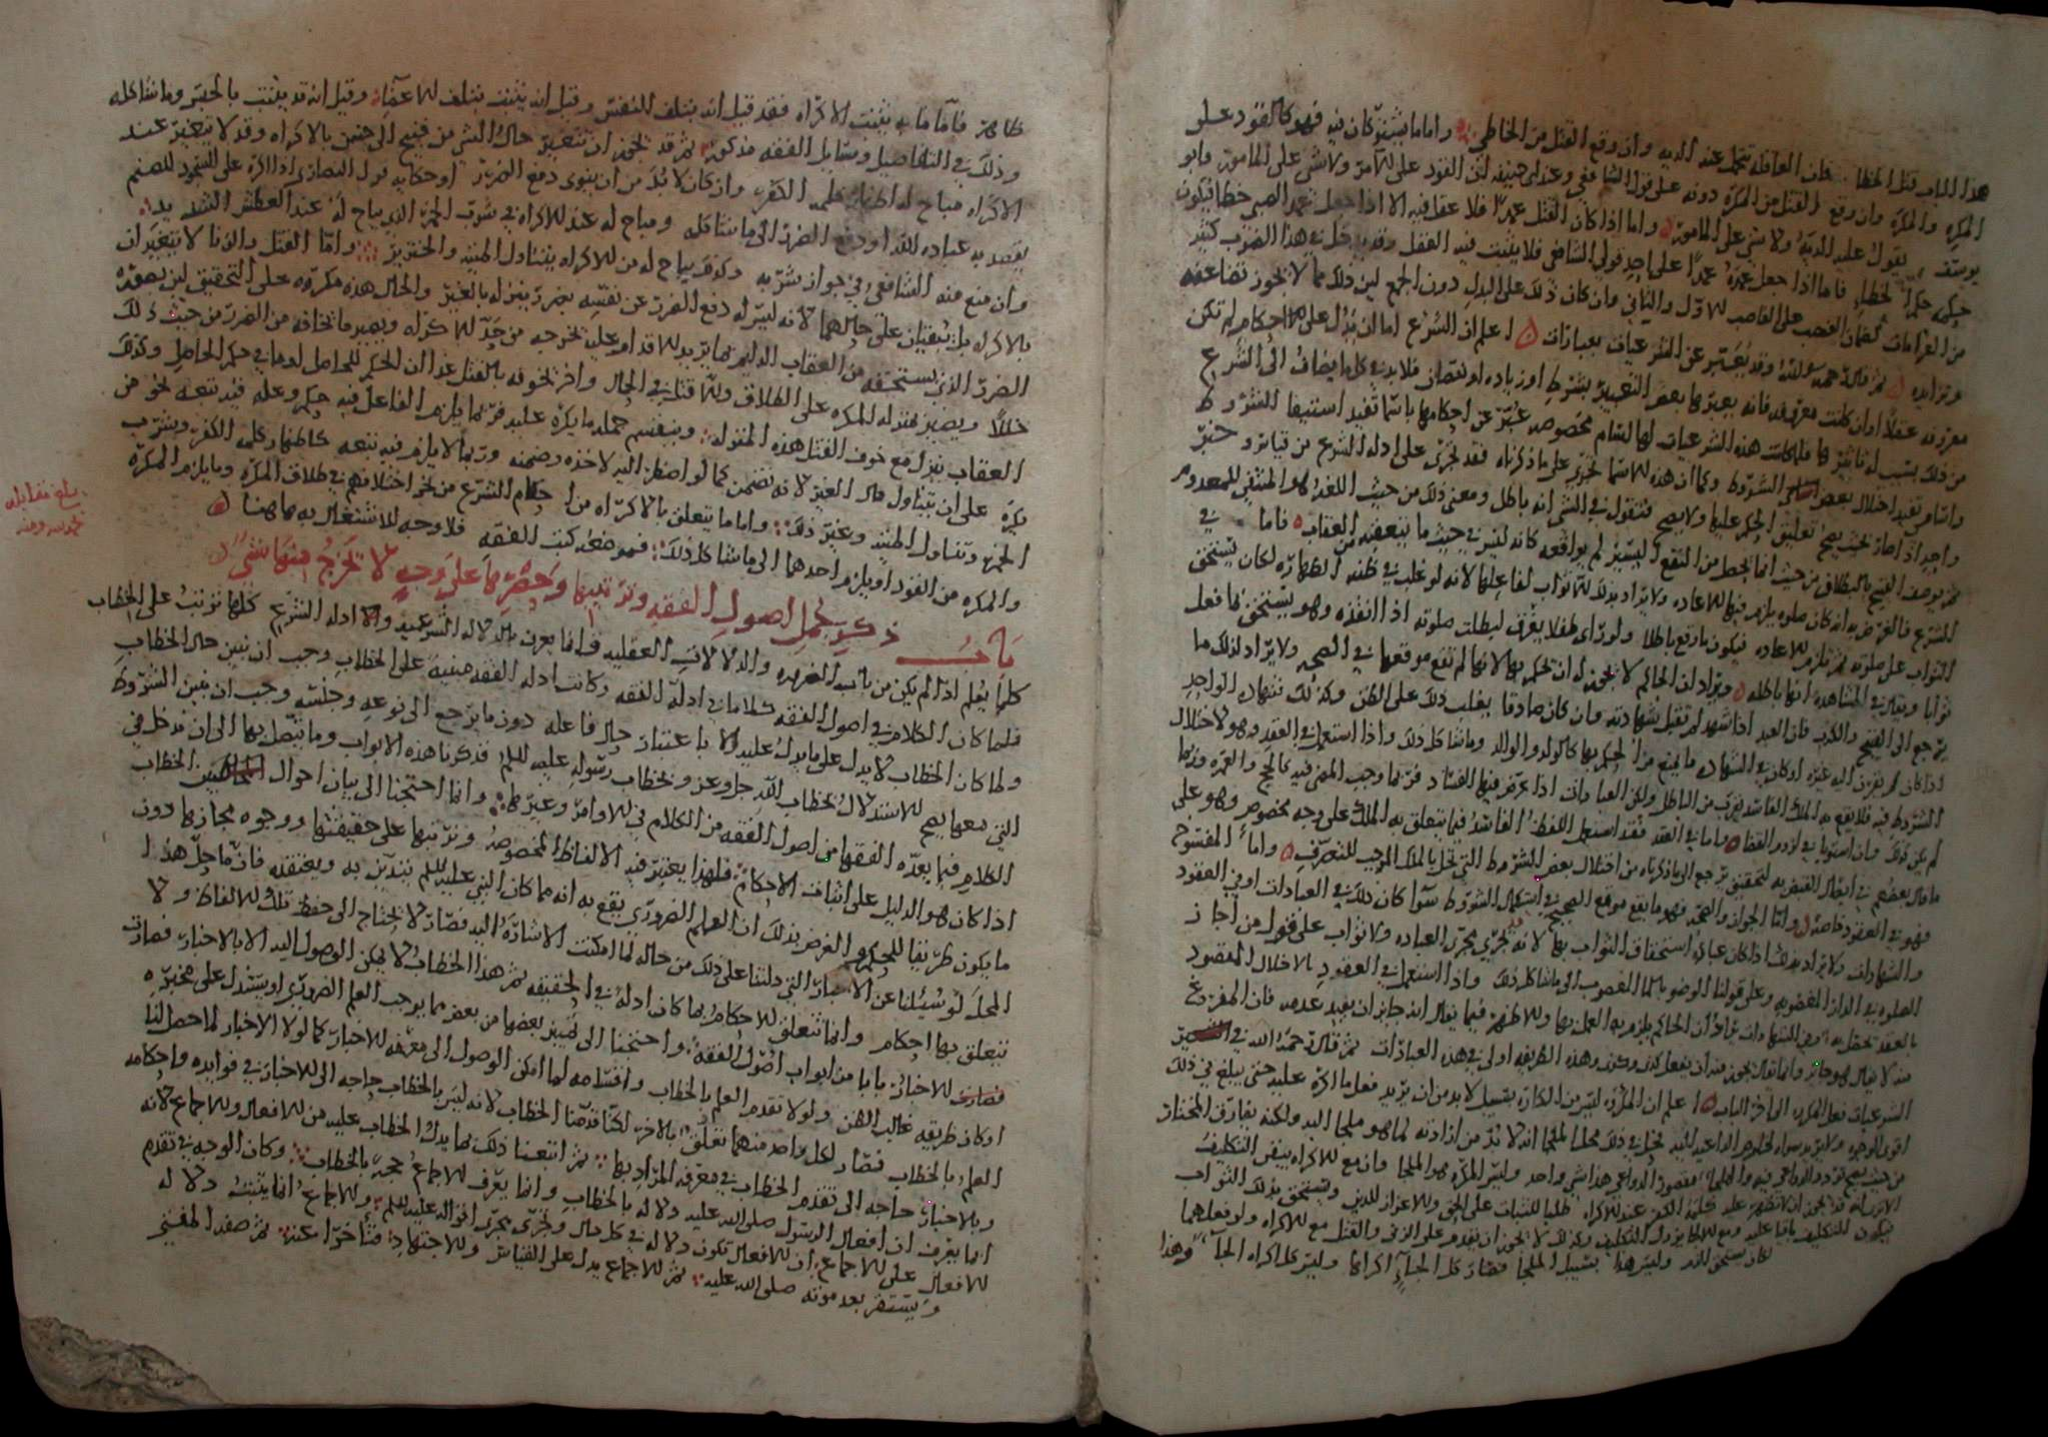 هذا الباب قتل الخطا فان العاقلة تتحمل عنه الديه وان وقع القتل من الخاطي واما ما يشترك كان فيه فهو كالقود على
المكره والمكره وان وقع القتل من المكره دونه على قول الشافعي وعند ابي حنيفه ان القود على الامر ولا شي على المامور وابو
يوسف يقول عليه الديه ولا شي على المامور واما اذا كان القتل عمدا فلا عقل فيه الا اذا جعل عمد الصبي خطا فيكون
حكمه حكم الخطا فاما اذا جعل عمده عمدا على احد قولي الشافعي فلا يثبت فيه العقل وقد يدخل في هذا الضرب كثير
من الغرامات كضمان الغصب على الغاصب الاول والثاني وان كان ذلك على البدل دون الجمع لان ذلك مما لا يجوز تضاعفه
وتزايده ثم قال رحمه الله وقد يعبر عن الشرعيات بعبارات اعلم ان الشرع اما ان يدل على احكام لم تكن
معروفه عقلا او ان كانت معروفه فانه يعبر بها بعض التعبير بشرط او زياده او نقصان فلا بد في كل ما يضاف الى الشرع
من ذلك بسبب له تاثير فلما كانت هذه الشرعيات لها اقسام مخصوصه عبر عن احكامها باسما تفيد استيفا الشروط
واسام تفيد اختلال بعض الشروط وكما ان هذه الاسما تجري على ما ذكرناه فقد تجري على ادله الشرع من قياس وخبر
واحد اذا صار بحيث يصح تعليق الحكم عليها ولا يصح فنقول في الشي انه باطل ومعنى ذلك من حيث اللغه هو المنتفي المعدوم
ثم يوصف القبيح بالبطلان من حيث انه لم يحصل من النفع اليسير لم يواقعه كانه ليس في حيث ما يتعقبه من العقاب فاما في
الشرع فالغرض به انه كان صلوه يلزم فيها الاعاده ولا يراد بذلك لا ثواب لفاعلها لانه لو غلب في ظنه الطهاره لكان يستحق
الثواب على صلوته ثم تلزمه الاعاده فيكون ما وقع باطلا ولو راى طفلا يغرق لبطلت صلوته اذا انقذه وهو يستحق بما فعل
ثوابا ويقال في الشاهده انها باطله ويراد ان الحاكم لا يجوز له ان يحكم بها لانها لم تقع موقعها في الصحه ولا يراد لذلك ما
يرجع الى القبح والكذب فان العبد اذا شهد لم تقبل شهادته وان كان صادقا يغلب ذلك على الظن وكذلك شهاده الواحد
اذا كان لم يقرن اليه غيره او كان في الشهاده ما يمنع من الحكم بها كالولد والوالد وما شاكل ذلك واذا استعمل في العقد وهو لاختلال
الشروط فيه فلا يقع به الملك الفاسد يقرب من الباطل ولان العبادات اذا عرض فيها الفساد فربما وجب المضي فيه كالحج والعمره وربما
لم يكن كذلك وان استويا في لزوم القضا واما في العقد فقد استعمل اللفظ الفاسد فيما يتعلق به الملك على وجه مخصوص وهو على
ما قال بعضهم في ابطال القبض به لتحقيق يرجع الى ما ذكرناه من اختلال بعض الشروط التي تخل بالملك الموجب للتصرف واما المفسوخ
فهو في العقود خاصه واما الجواز والصحه فهو ما يقع موقع الصحيح في استكمال الشروط سوا كان ذلك في العبادات او في العقود
والشهادات ولا يراد بذلك اذا كان عباده استحقاق الثواب بها لانه قد يجري مجرى العباده ولا ثواب على قول من اجاز
الصلوه في الدار المغصوبه وعلى قولنا الوضو بالما المغصوب الى ما شاكل ذلك واذا استعمل في العقود بالاختلال المقصود
بالعقد يحصل به وفي الشهادات يراد ان الحاكم يلزمه العمل بها وللاظهر فيما يقال انه جايز ان يفيد عدمه فان المفروغ
منه لا يقال هو جايز وانما يقال يجوز منه ان يفعل كذى وكذى وهذه الطريقه اولى في هذه العبارات ثم قال رحمه الله في
الشرعيات فعل المكره الى اخر الباب اعلم ان المكره ليس من الكاره بسبيل لا بد من ان يريد فعل ما اكره عليه حتى يبلغ في ذلك
اقوى الوجوه
من حيث يصح تردد الدواعي فيه والملجا مقصور الدواعي هذا شي واحد وليس المكره هو الملجا وان مع الاكراه يبقى التكليف
الا ترى انه قد يجوز ان لا تظهر عليه كلمه الكفر عند الاكراه طلبا للثبات على الحق والاعزاز للدين ويستحق بذلك الثواب
فيكون التكليف باقيا عليه ومع الالجا يزول التكليف وكذلك لا يجوز ان يقدم على الزنى والقتل مع الاكراه ولو فعلهما
كان يستحق الذم وليس هذا بسبيل الملجا فصار كل الجاء اكراها وليس كل اكراه الجاء وهذا
ظاهر فاما ما به يثبت الاكراه فقد قيل انه بتلف النفس وقيل انه يثبت بتلف الاعضاء وقيل انه قد يثبت بالحبس وما شاكله
وذلك في التفاصيل ومسايل الفقه مذكور ثم قد يجوز ان تتغير حال الشي من قبح الى حسن بالاكراه وقد لا يتغير عند
الاكراه فيباح له اظهار كلمه الكفر وان كان لا بد من ان ينوى دفع الضرر او حكايه قول النصارى اذا اكره على السجود للصنم
يقصد به عباده الله او دفع الضرر الى ما شاكله ويباح له عند الاكراه في شرب الخمر الذي يباح له عند العطش الشديد
وان منع منه الشافعي في جواز شربه وكذلك يباح له من الاكراه يتناول الميته والخنزير واما القتل والزنا لا يتغيران
بالاكراه بل يبقيان على حالهما لانه ليس له دفع الضرر عن نفسه بضرر ينزله بالغير والحال هذه مكروه على التحقيق لان يصوره
الضرر الذي يستحقه من العقاب الدايم بما يريد الاقدام عليه يخرجه من حد الاكراه ويصير ما يخافه من الضرر من حيث ذلك
خللا ويصير بمنزله المكره على الطلاق ولما قتل في الحال واخر تخوفه بالقتل غدا ان الحكم للحاصل او ما في حكم الحاصل وكذلك
العقاب ينزل مع خوف القتل هذه المنزله وينقسم جمله ما يكره عليه فربما يلزم الفاعل فيه حكم وعله فيه تبعه نحو من
يكره على ان يتناول مال الغير لانه تضمن كما لو اضطر اليه لاخذه وضمنه وربما لا يلزم فيه تبعه كاظهار كلمه الكفر وشرب
الخمر وتناول الميته وغير ذلك واما ما يتعلق بالاكراه من احكام الشرع من نحو اختلافهم في طلاق المكره وما يلزم المكره
والمكره من القود او يلزم احدهما الى ما شاكل ذلك فموضعه كتب الفقه فلا وجه للاشتغال به هاهنا
باب ذكر جمل اصول الفقه وترتيبها وحصرها على وجه لا تخرج منها شي
كلما يعلم اذا لم يكن من باب الضروره والدلالات العقليه فانما يعرف بالدلاله الشرعيه والادله الشرع كلها ترتب على الخطاب
فلما كان الكلام في اصول الفقه كلاما في ادله الفقه وكانت ادله الفقه مبنيه على الخطاب وجب ان نبين حال الخطاب
ولما كان الخطاب لا يدل على ما يدل عليه الا باعتبار حال فاعله دون ما يرجع الى نوعه وجنسه وجب ان نبين الشروط
التي معها يصح الاستدلال بخطاب الله جل وعز وبخطاب رسوله عليه السلم فذكرنا هذه الابواب وما يتصل بها الى ان ندخل في
الكلام فيما يعده الفقها من اصول الفقه من الكلام في الاوامر وغيرها وانما احتجنا الى بيان احوال الخطاب
اذا كان هو الدليل على اثبات الاحكام فلهذا يعتبر فيه الالفاظ المخصوصه ونرتبها على حقيقتها ووجوه مجازها دون
ما يكون طريقا للعلم والغرض بذلك ان العلم الضروري يقع به انه مما كان النبي عليه السلم يتدين به ويعتقده فان ما حل هذا
المحل لو سئلنا عن الاخبار التي دلتنا على ذلك من حاله لما امكنت الاشاره اليه فصار لا يحتاج الى حفظ تلك الالفاظ ولا
تتعلق بها احكام وانما تتعلق الاحكام بما كان ادله في الحقيقه ثم هذا الخطاب لا يمكن الوصول اليه الا بالاخبار فصارت
الاخبار بابا من ابواب اصول الفقه واحتجنا الى تمييز بعضها من بعض مما يوجب العلم الضروري او يستدل على مخبره
او كان طريقه غالب الظن ولولا تقدم العلم بالخطاب واقسامه لما امكن الوصول الى معرفه الاخبار كما لولا الاخبار لما حصل لنا
العلم بالخطاب فصار لكل واحد منهما تعلق بالاخر لكنا قدمنا الخطاب لانه ليس بالخطاب حاجه الى الاخبار في فوايده واحكامه
وبالاخبار حاجه الى تقدم الخطاب في معرفه المراد بها ثم اتبعنا ذلك بما يدل الخطاب عليه من الافعال والاجماع لانه
انما يعرف ان افعال الرسول صلى الله عليه دلاله بالخطاب وانما يعرف الاجماع حجه بالخطاب وكان الوجه في تقدم
الافعال على الاجماع ان الافعال تكون دلاله في كل حال وتجري مجرى اقواله عليه السلم والاجماع انما يثبت دلاله
ويستقر بعد موته صلى الله عليه ثم الاجماع يدل على القياس والاجتهاد فتاخرا عنه ثم صفه المفتي
بلغ مقابله